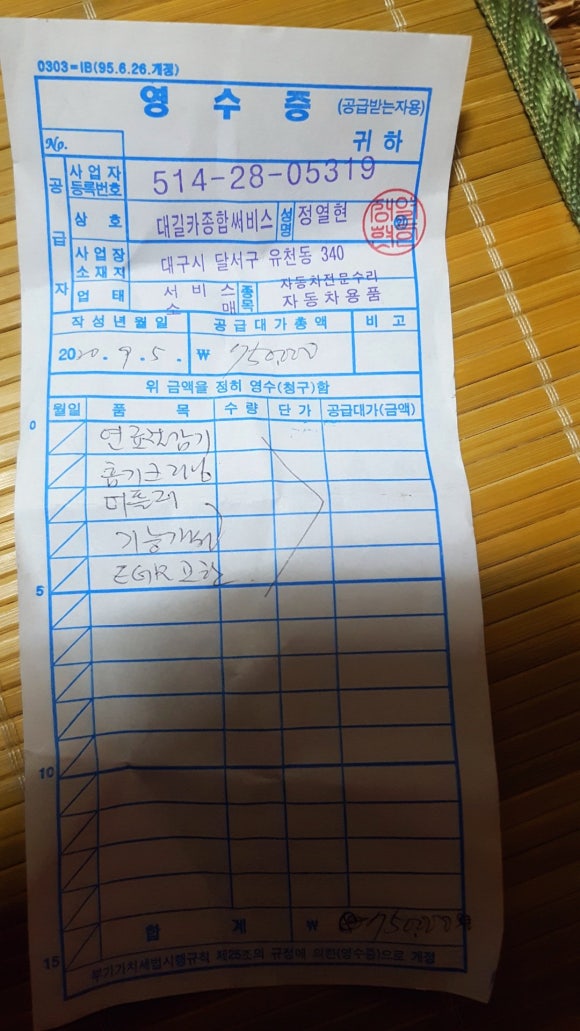 0303=IB(95.6.26.개정)
영 수 증 (공급받는자용)
No. 귀 하
공급자
사업자등록번호 514-28-05319
상 호 대길카종합써비스 성명 정열현
사업장소재지 대구시 달서구 유천동 340
업 태 서비스 소 매 종목 자동차전문수리 자동차용품
작성년월일 공급대가총액 비 고
2020. 9. 5. ₩ 750,000
위 금액을 정히 영수(청구)함
월일 품 목 수 량 단 가 공급대가(금액)
0
연료절감기
흡기크리닝
머플러
기능개선
5 EGR 포함
10
합 계 ₩ 750,000
15 부가가치세법시행규칙 제25조의 규정에 의한(영수증)으로 개정